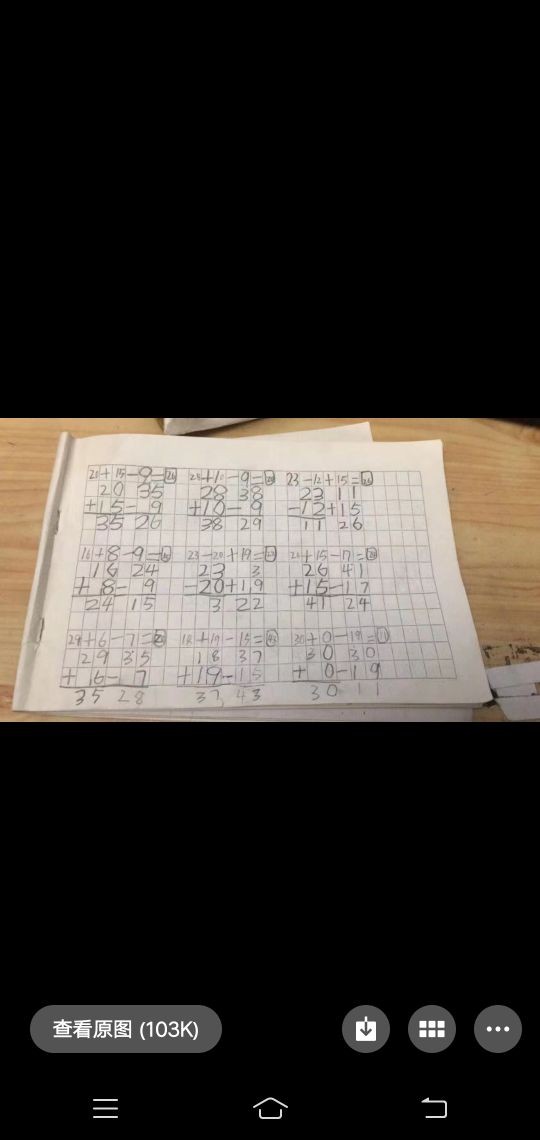 20+15-9=26 28+10-9=29 23-12+15=26
20 35 28 38 23 11
+15-9 +10-9 -12+15
35 26 38 29 11 26
16+8-9=15 23-20+19=22 26+15-17=24
16 24 23 3 26 41
+8-9 -20+19 +15-17
24 15 3 22 41 24
29+6-7=28 18+19-15=43 30+0-19=11
29 35 18 37 30 30
+16-7 +19-15 +0-19
35 28 37 43 30 11
查看原图 (103K)